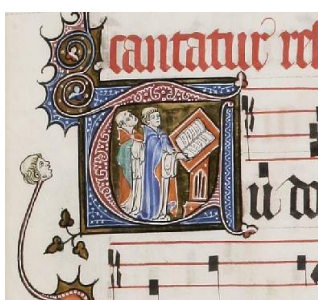 cantatur res
Cū do